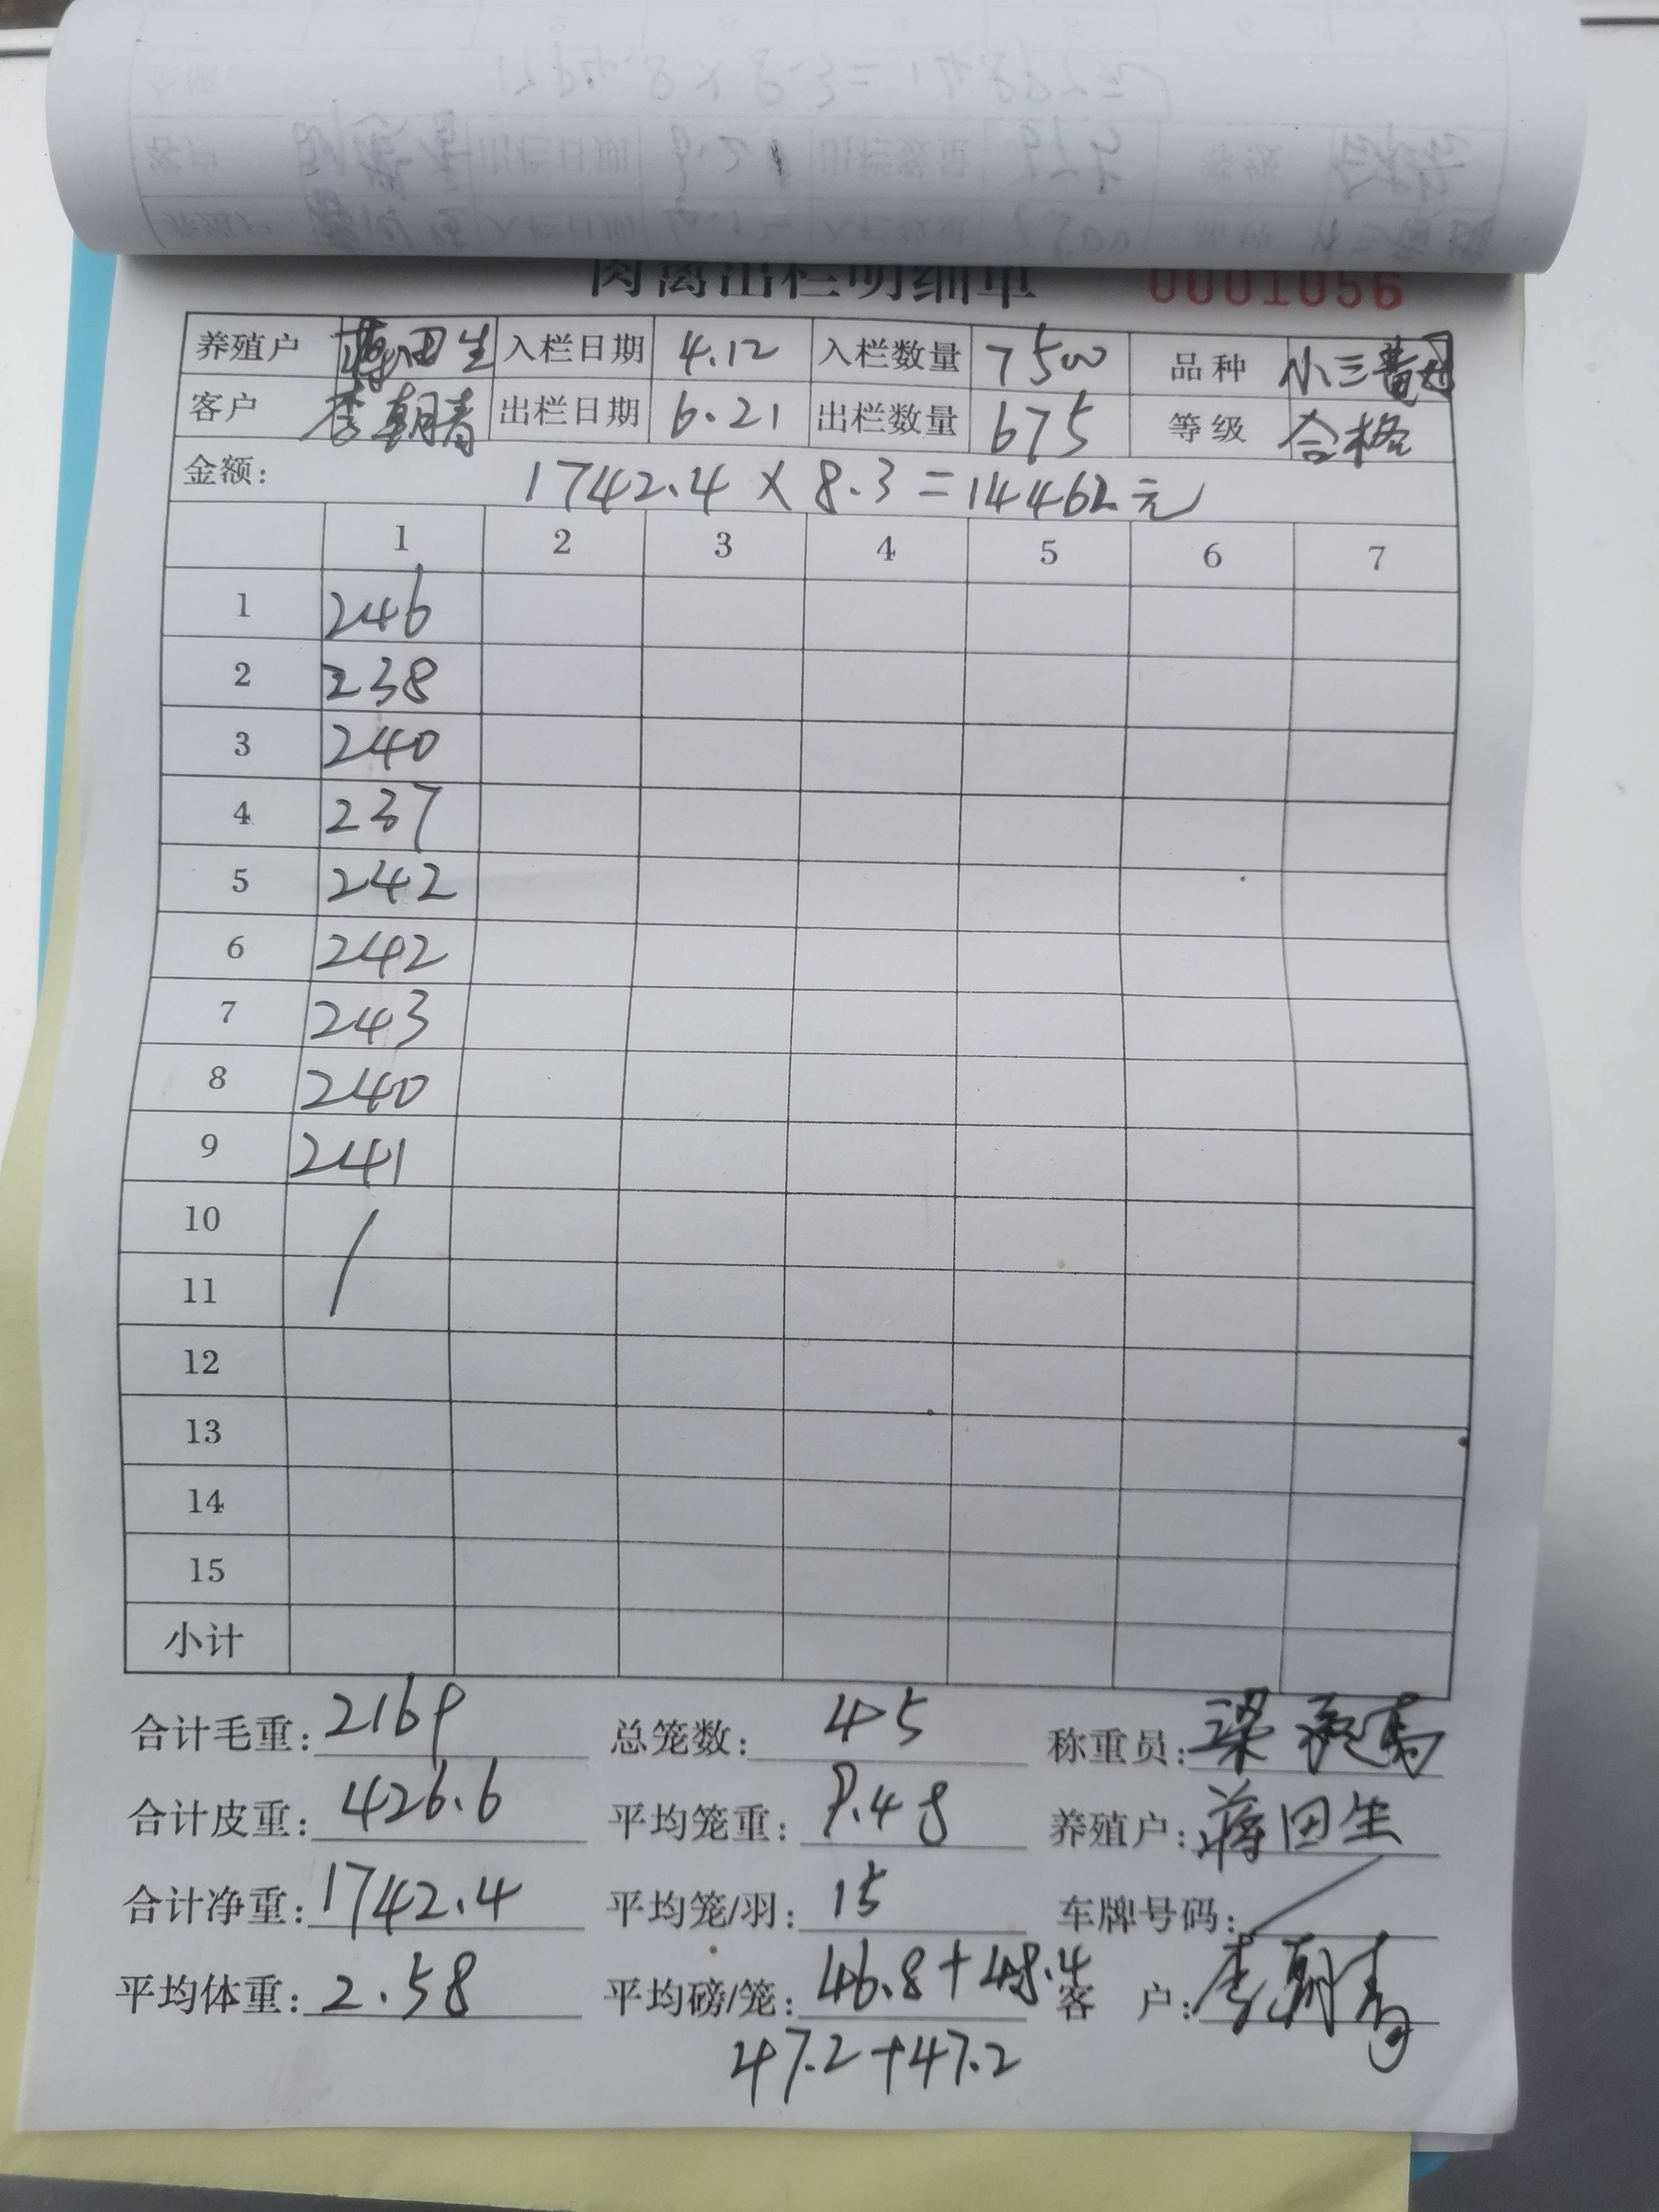 肉禽出栏明细单 0001056
养殖户 蒋田生 入栏日期 4.12 入栏数量 7500 品种 小三黄
客户 李朝青 出栏日期 6.21 出栏数量 675 等级 合格
金额: 1742.4 × 8.3 = 14462元
1 2 3 4 5 6 7
1 246
2 238
3 240
4 237
5 242
6 242
7 243
8 240
9 241
10
11
12
13
14
15
小计
合计毛重: 2169 总笼数: 45 称重员: 梁
合计皮重: 426.6 平均笼重: 9.48 养殖户: 蒋田生
合计净重: 1742.4 平均笼/羽: 15 车牌号码:
平均体重: 2.58 平均磅/笼: 46.8+48.4 客 户: 李朝青
47.2+47.2